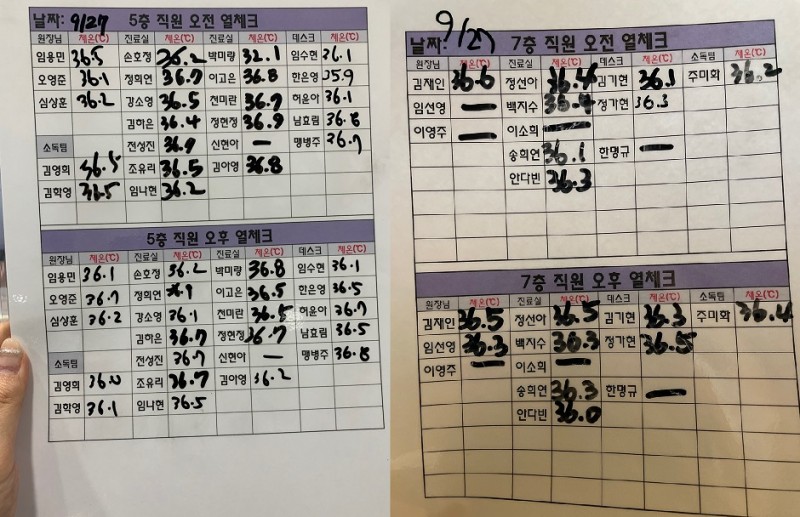 날짜: 9/27 5층 직원 오전 열체크
원장님 체온(℃) 진료실 체온(℃) 진료실 체온(℃) 데스크 체온(℃)
임용민 36.5 손호정 36.2 박미랑 32.1 임수현 36.1
오영준 36.1 정희연 36.7 이고은 36.8 한은영 35.9
심상훈 36.2 강소영 36.5 천미란 36.7 허윤아 36.1
김하은 36.4 정현정 36.9 남효림 36.8
소독팀 전성진 36.9 신현아 — 맹병주 36.7
김영희 36.5 조유리 36.5 김아영 36.8
김학영 36.5 임나현 36.2
5층 직원 오후 열체크
원장님 체온(℃) 진료실 체온(℃) 진료실 체온(℃) 데스크 체온(℃)
임용민 36.1 손호정 36.2 박미랑 36.8 임수현 36.1
오영준 36.7 정희연 이고은 36.5 한은영 36.5
심상훈 36.2 강소영 36.1 천미란 36.5 허윤아 36.7
김하은 36.7 정현정 36.7 남효림 36.5
소독팀 전성진 36.7 신현아 — 맹병주 36.8
김영희 조유리 36.7 김아영 36.2
김학영 36.1 임나현 36.5
날짜: 9/27 7층 직원 오전 열체크
원장님 체온(℃) 진료실 체온(℃) 데스크 체온(℃) 소독팀 체온(℃)
김재인 36.6 정선아 36.4 김기현 36.1 주미화 36.2
임선영 — 백지수 36.4 정가현 36.3
이영주 — 이소희 —
송희연 36.1 한명규 —
안다빈 36.3
7층 직원 오후 열체크
원장님 체온(℃) 진료실 체온(℃) 데스크 체온(℃) 소독팀 체온(℃)
김재인 36.5 정선아 36.5 김기현 36.3 주미화 36.4
임선영 36.3 백지수 36.3 정가현 36.5
이영주 — 이소희 —
송희연 36.3 한명규 —
안다빈 36.0